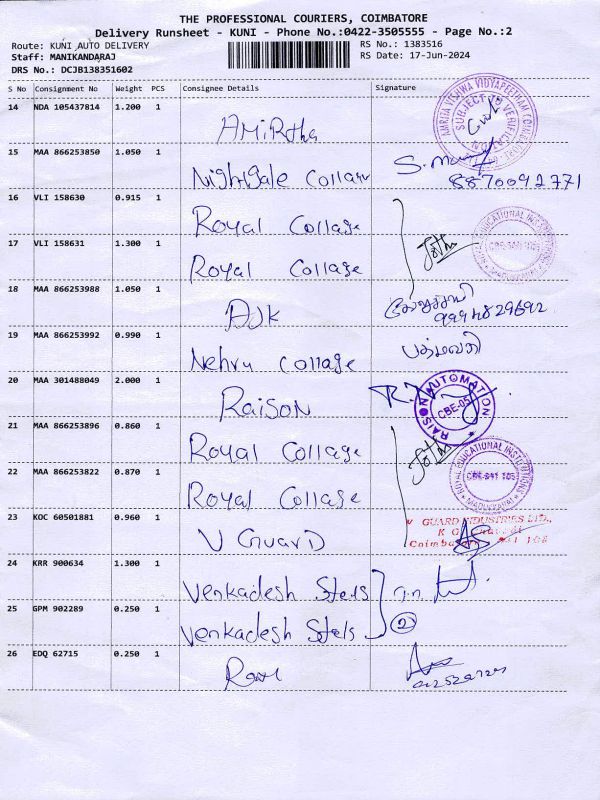 THE PROFESSIONAL COURIERS, COIMBATORE
Delivery Runsheet - KUNI - Phone No.:0422-3505555 - Page No.:2
Route: KUNI AUTO DELIVERY RS No.: 1383516
Staff: MANIKANDARAJ RS Date: 17-Jun-2024
DRS No.: DCJB138351602
S No Consignment No Weight PCS Consignee Details Signature
14 NDA 105437814 1.200 1 AMiRtha
AMRITA VISHWA VIDYAPEETHAM COIMBATORE
SUBJECT TO VERIFICATION
15 MAA 866253850 1.050 1 Nightigale Collage
8870092771
16 VLI 158630 0.915 1 Royal Collage
17 VLI 158631 1.300 1 Royal Collage
EDUCATIONAL INSTITUTIONS
CBE-641 105
18 MAA 866253988 1.050 1 AJK
9994829692
19 MAA 866253992 0.990 1 Nehru Collage
20 MAA 301488049 2.000 1 RaiSoN
RAISON AUTOMATION
CBE-05
21 MAA 866253896 0.860 1 Royal Collage
22 MAA 866253822 0.870 1 Royal Collage
ROYAL EDUCATIONAL INSTITUTIONS
CBE-641 105
MADUKKARAI
23 KOC 60501881 0.960 1 V GUARD
V GUARD INDUSTRIES LTD.,
24 KRR 900634 1.300 1 Venkadesh Stels
25 GPM 902289 0.250 1 Venkadesh Stels
2
26 EDQ 62715 0.250 1